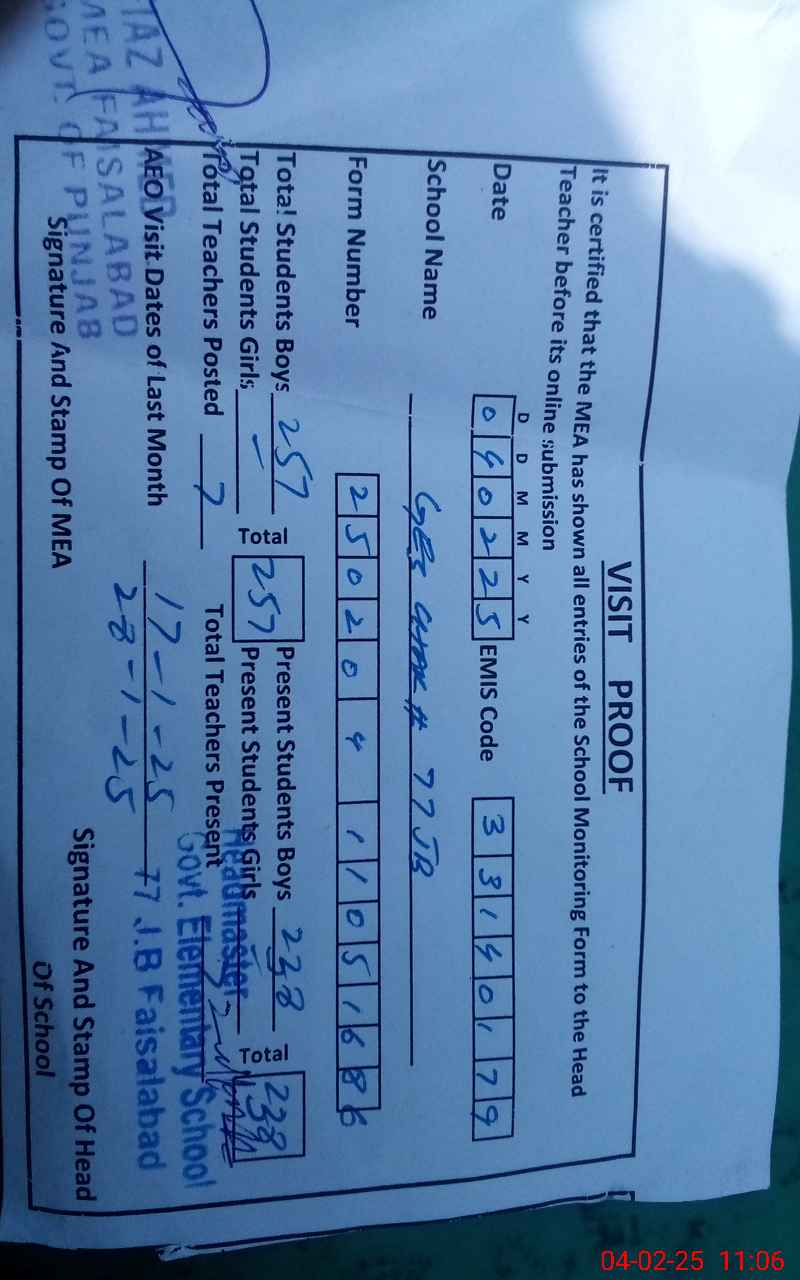 VISIT PROOF
It is certified that the MEA has shown all entries of the School Monitoring Form to the Head
Teacher before its online submission
D D M M Y Y
Date 040225 EMIS Code 33140179
School Name GES # 77JB
Form Number 25020411051686
Total Students Boys 257 Present Students Boys 238
Total Students Girls — Total 257 Present Students Girls — Total 238
Total Teachers Posted 7 Total Teachers Present
AEO Visit Dates of Last Month 17-1-25
28-1-25
Signature And Stamp Of MEA
Signature And Stamp Of Head
Of School
Headmaster
Govt. Elementary School
77 J.B Faisalabad
TAZ AHMED
MEA FAISALABAD
GOVT. OF PUNJAB
04-02-25 11:06